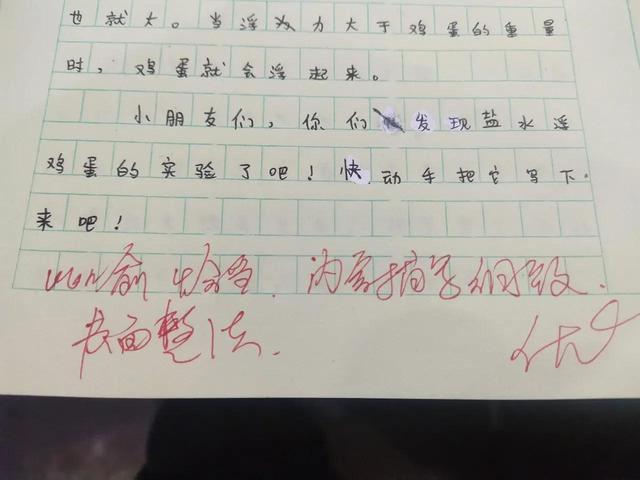 也就大。当浮力大于鸡蛋的重量
时，鸡蛋就会浮起来。
小朋友们，你们发现盐水浮
鸡蛋的实验了吧！快动手把它写下
来吧！
内容描写细致.
卷面整洁.
优